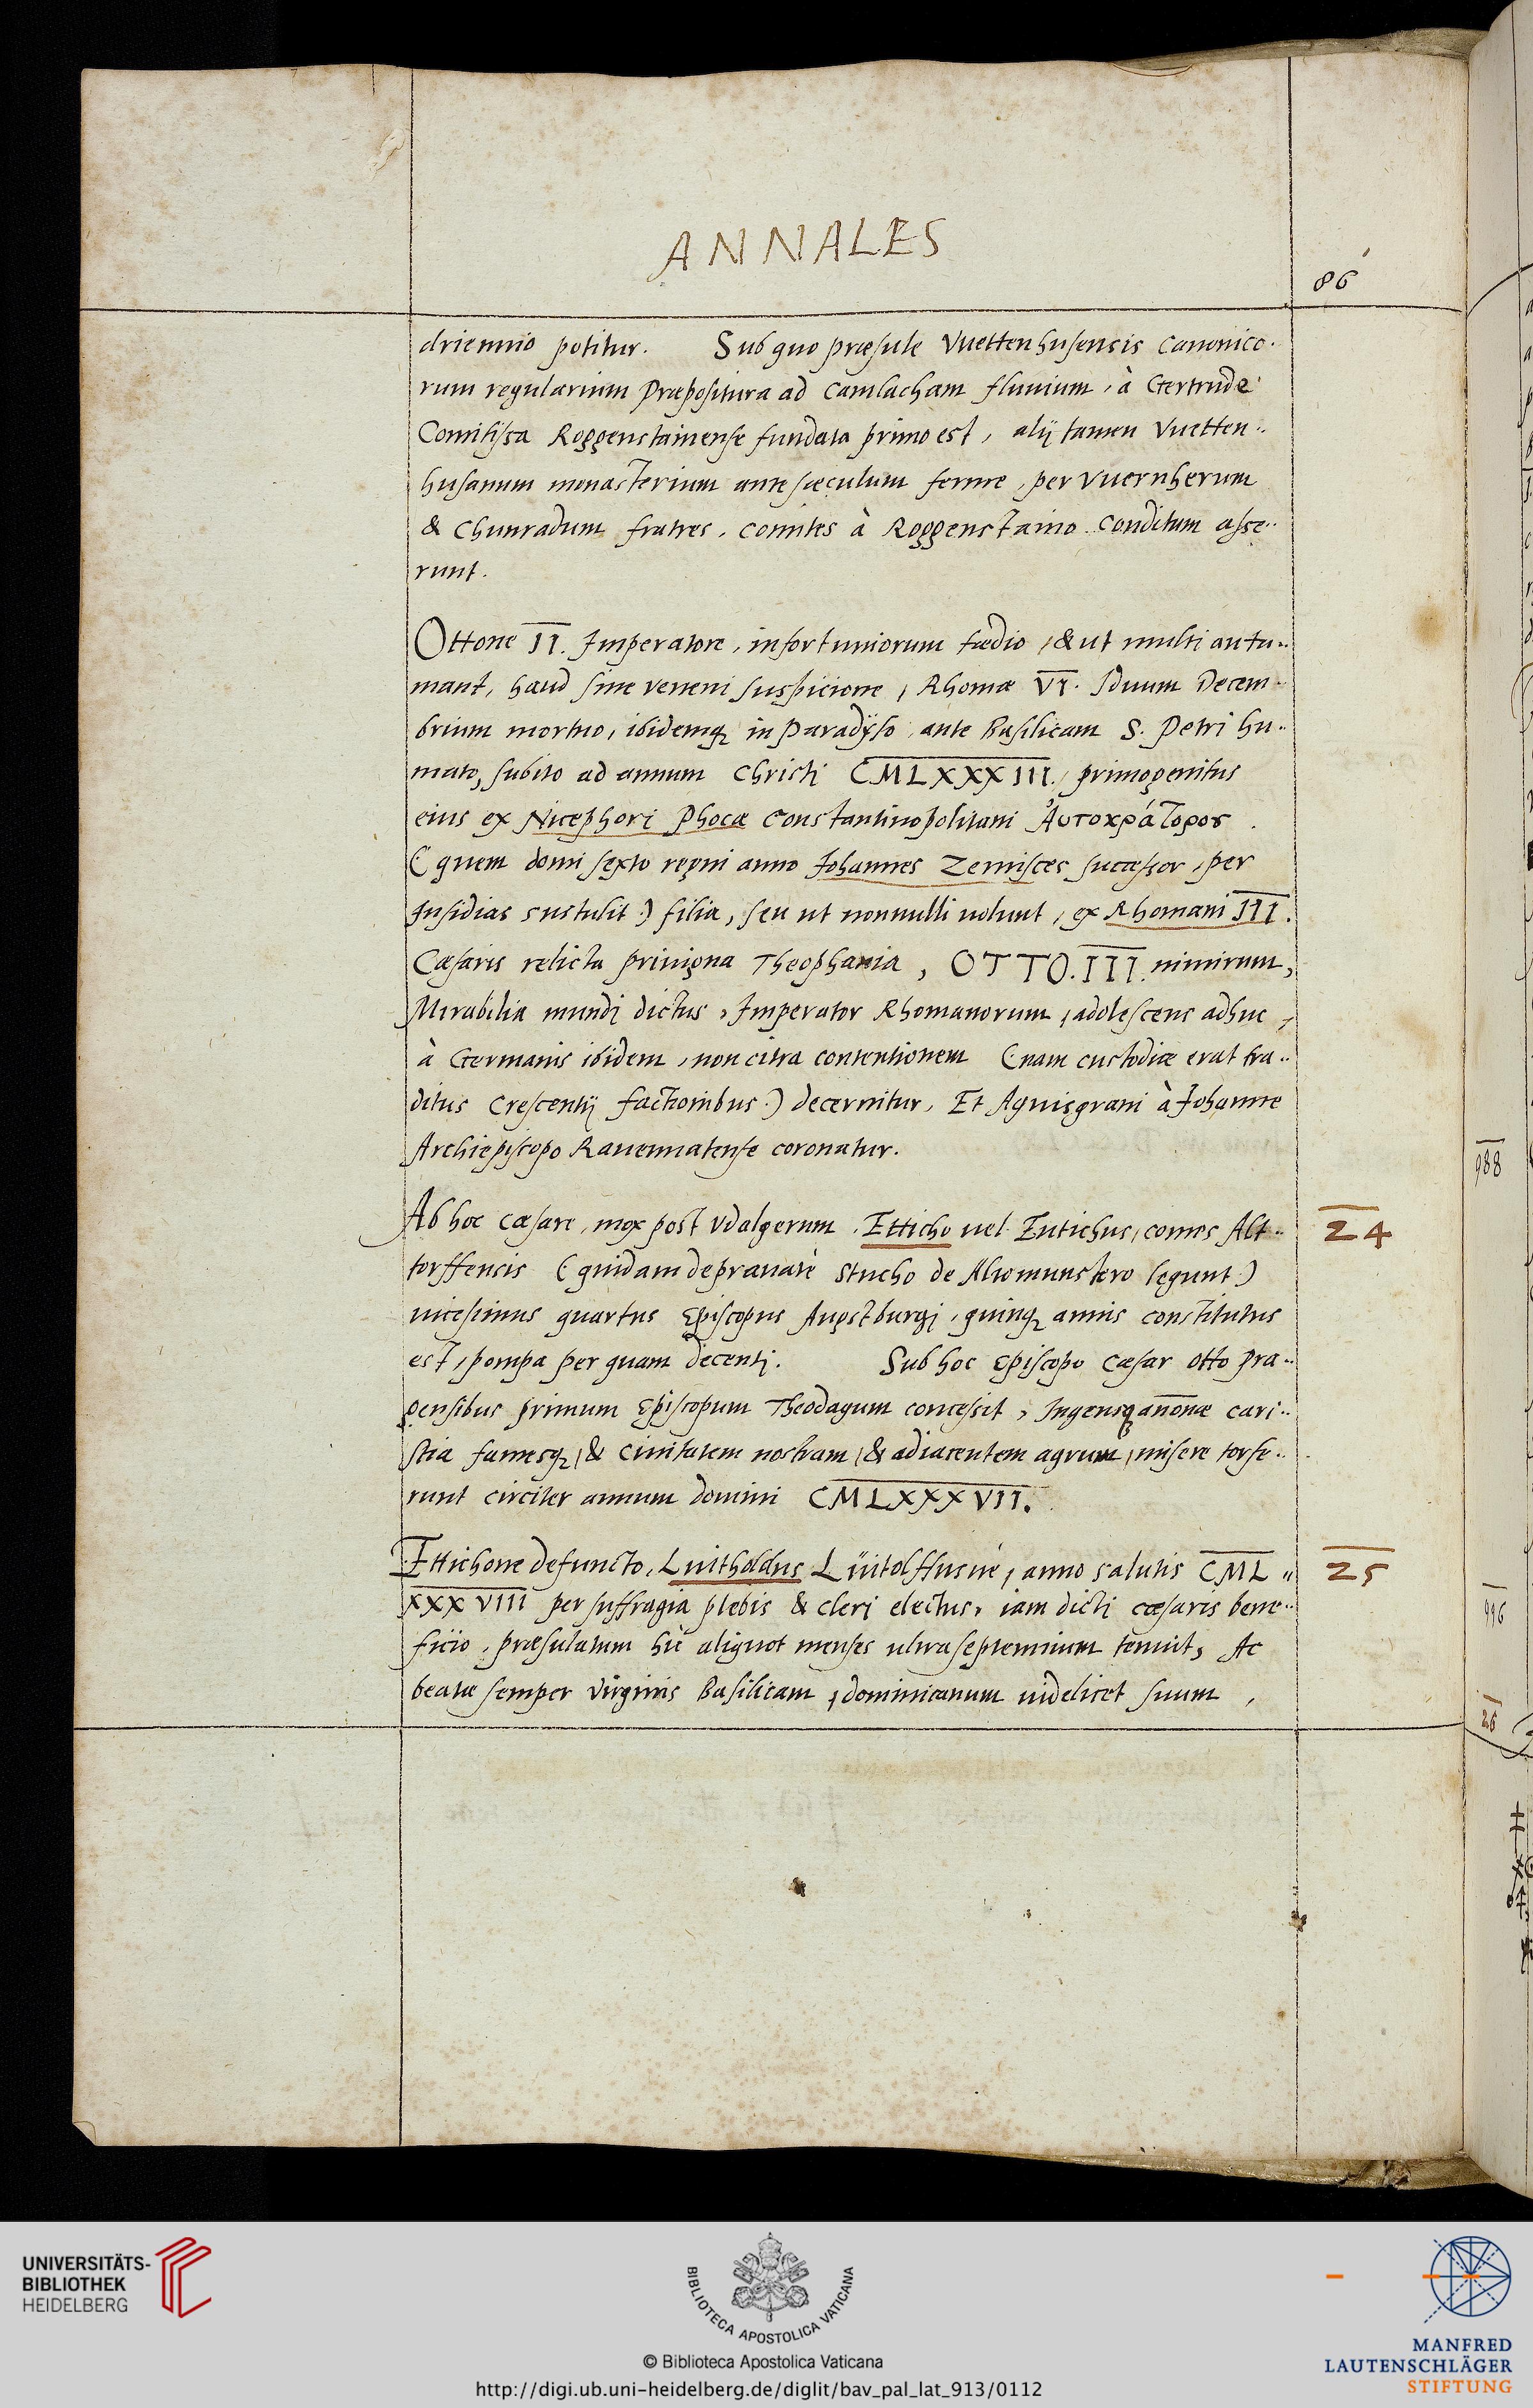 ANNALES
86
driennio potitur. Sub quo præsule Vuettenhusensis Canonico-
rum regularium Præpositura ad Camlacham fluuium, à Gertrude
Comitissa Roggenstainense fundata primo est, alij tamen Vuetten..
husanum monasterium ante sæculum ferme, per Vuernherum
& Chunradum fratres, comites à Roggenstaino conditum asse..
runt.
Ottone II. Imperatore, infortuniorum tædio, & ut multi autu..
mant, haud sine veneni suspicione, Rhomæ VI. Iduum Decem..
brium mortuo, ibidemq; in Paradÿso ante Basilicam S. Petri hu..
mato, subito ad annum Christi CMLXXXIII., primogenitus
eius ex Nicephori Phocæ Constantinopolitani Ἀυτοκράτορος
(quem domi sexto regni anno Johannes Zemisces successor, per
Insidias sustulit.) filia, seu ut nonnulli uolunt, ex Rhomani III.
Cæsaris relicta priuigna Theophania, OTTO. III. nimirum,
Mirabilia mundi dictus, Imperator Rhomanorum, adolescens adhuc,
à Germanis ibidem, non citra contentionem (nam custodiæ erat tra..
ditus Crescentij factionibus.) decernitur, Et Aquisgrani à Johanne
Archiepiscopo Rauennatense coronatur.
Ab hoc Cæsare, mox post Vdalgerum, Etticho uel Eutichus, comes Alt..
24
torffensis (quidam deprauatè Stucho de Altomunstero legunt.)
uicesimus quartus Episcopus Augstburgi, quinq; annis constitutus
est, pompa per quam decenti. Sub hoc Episcopo Cæsar Otto Pra..
gensibus primum Episcopum Theodagum concessit, Ingensq; annonæ cari..
stia famesq;, & Ciuitatem nostram, & adiacentem agrum, misere torse..
runt circiter annum domini CMLXXXVII.
Ettichone defuncto, Luitholdus Lüitolffusuè, anno salutis CML..
25
XXXVIII per suffragia plebis & cleri electus, iam dicti cæsaris bene..
ficio, præsulatum hic aliquot menses ultra septennium tenuit, Ac
beatæ semper Virginis Basilicam, dominicanum uidelicet suum,
988
996
26
UNIVERSITÄTS-
BIBLIOTHEK
HEIDELBERG
BIBLIOTECA APOSTOLICA VATICANA
© Biblioteca Apostolica Vaticana
http://digi.ub.uni-heidelberg.de/diglit/bav_pal_lat_913/0112
MANFRED
LAUTENSCHLÄGER
STIFTUNG